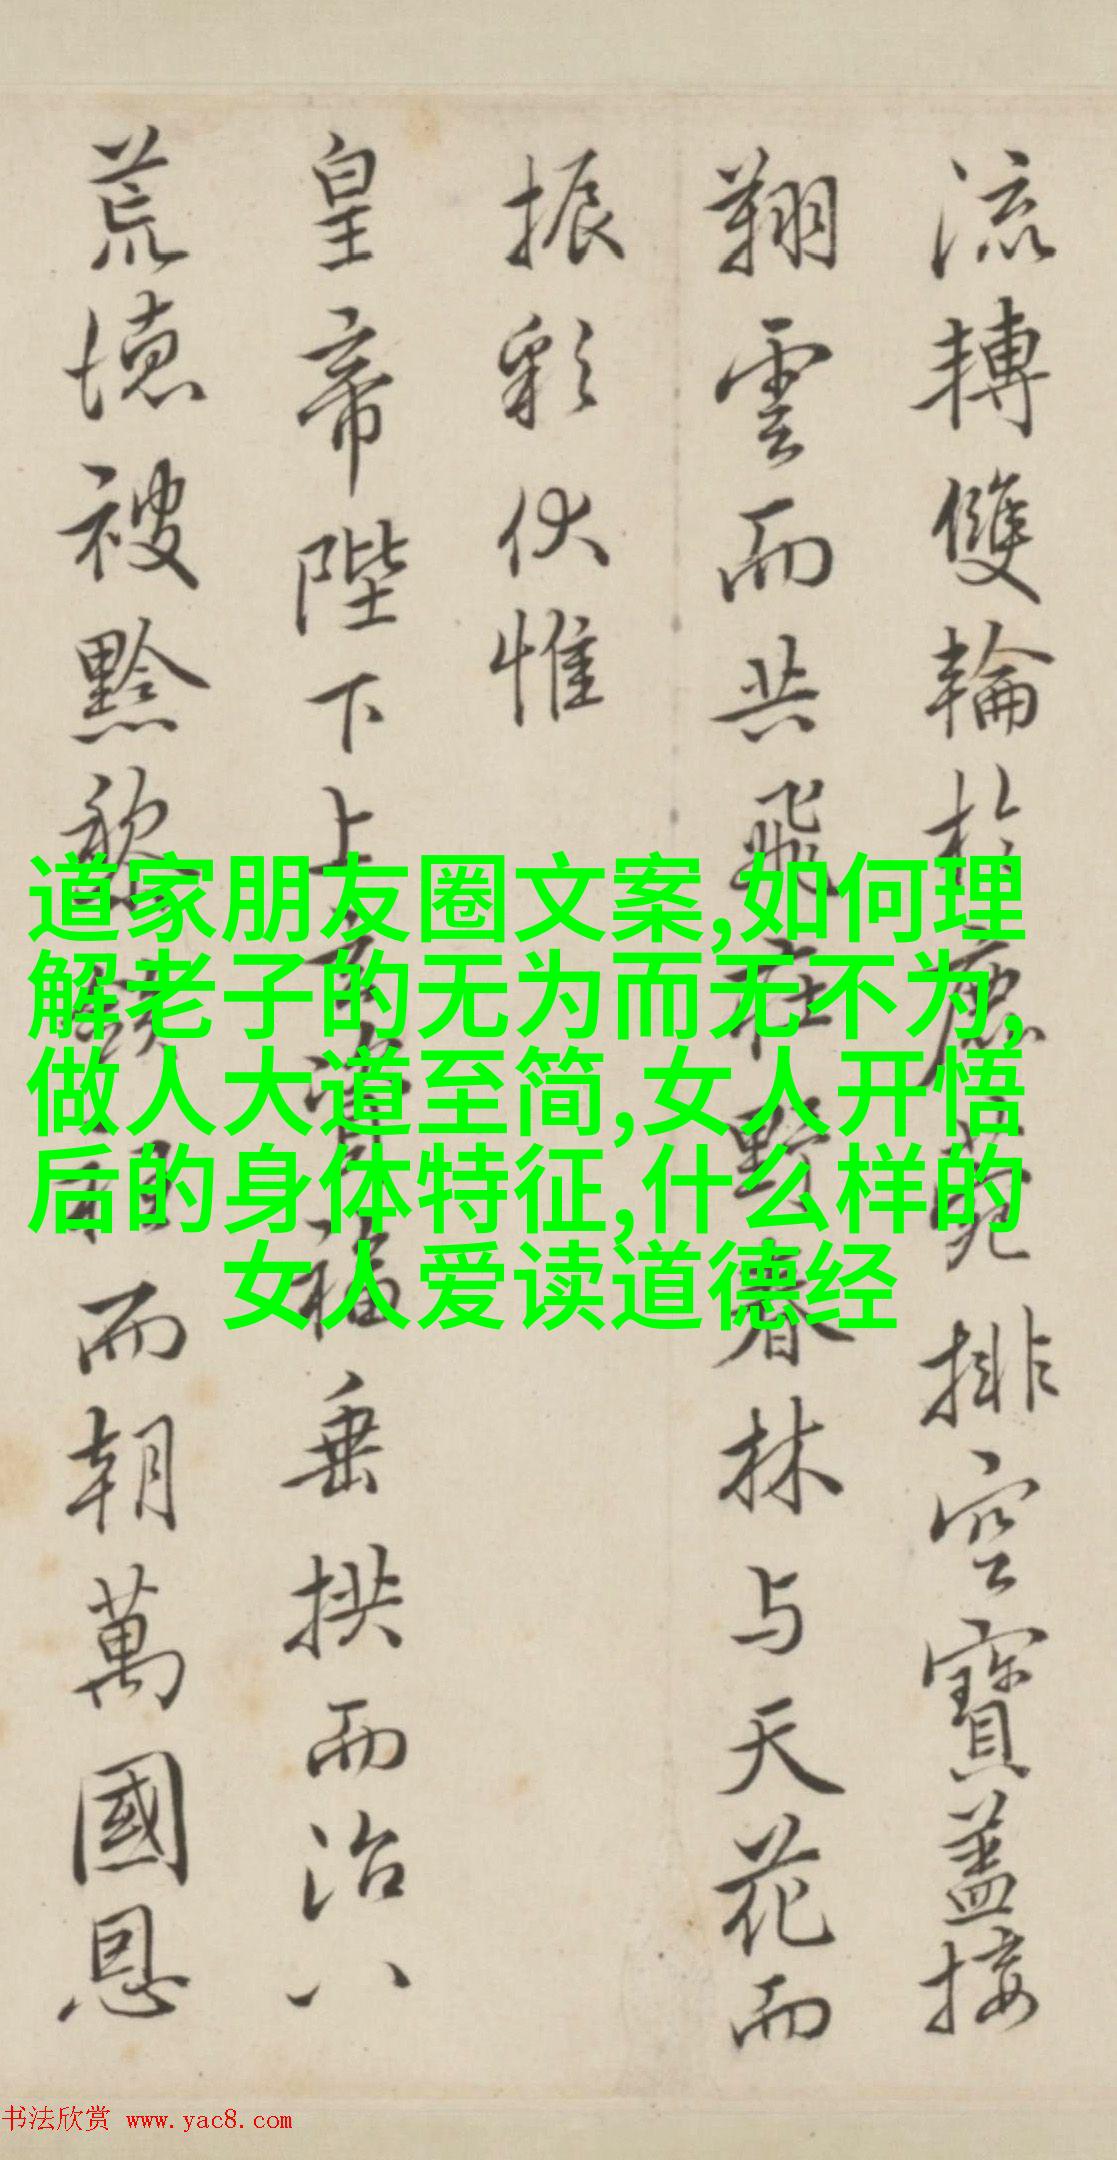 流轉雙輪於鹿苑排空寶蓋接
翔雲而共飛莊野春林与天花而
振彩伏惟
皇帝陛下上玄資福垂拱而治八
荒德被黔黎斂衽而朝萬國恩
道家朋友圈文案,如何理
解老子的无为而无不为,
做人大道至简,女人开悟
后的身体特征,什么样的
女人爱读道德经
书法欣赏 www.yac8.com